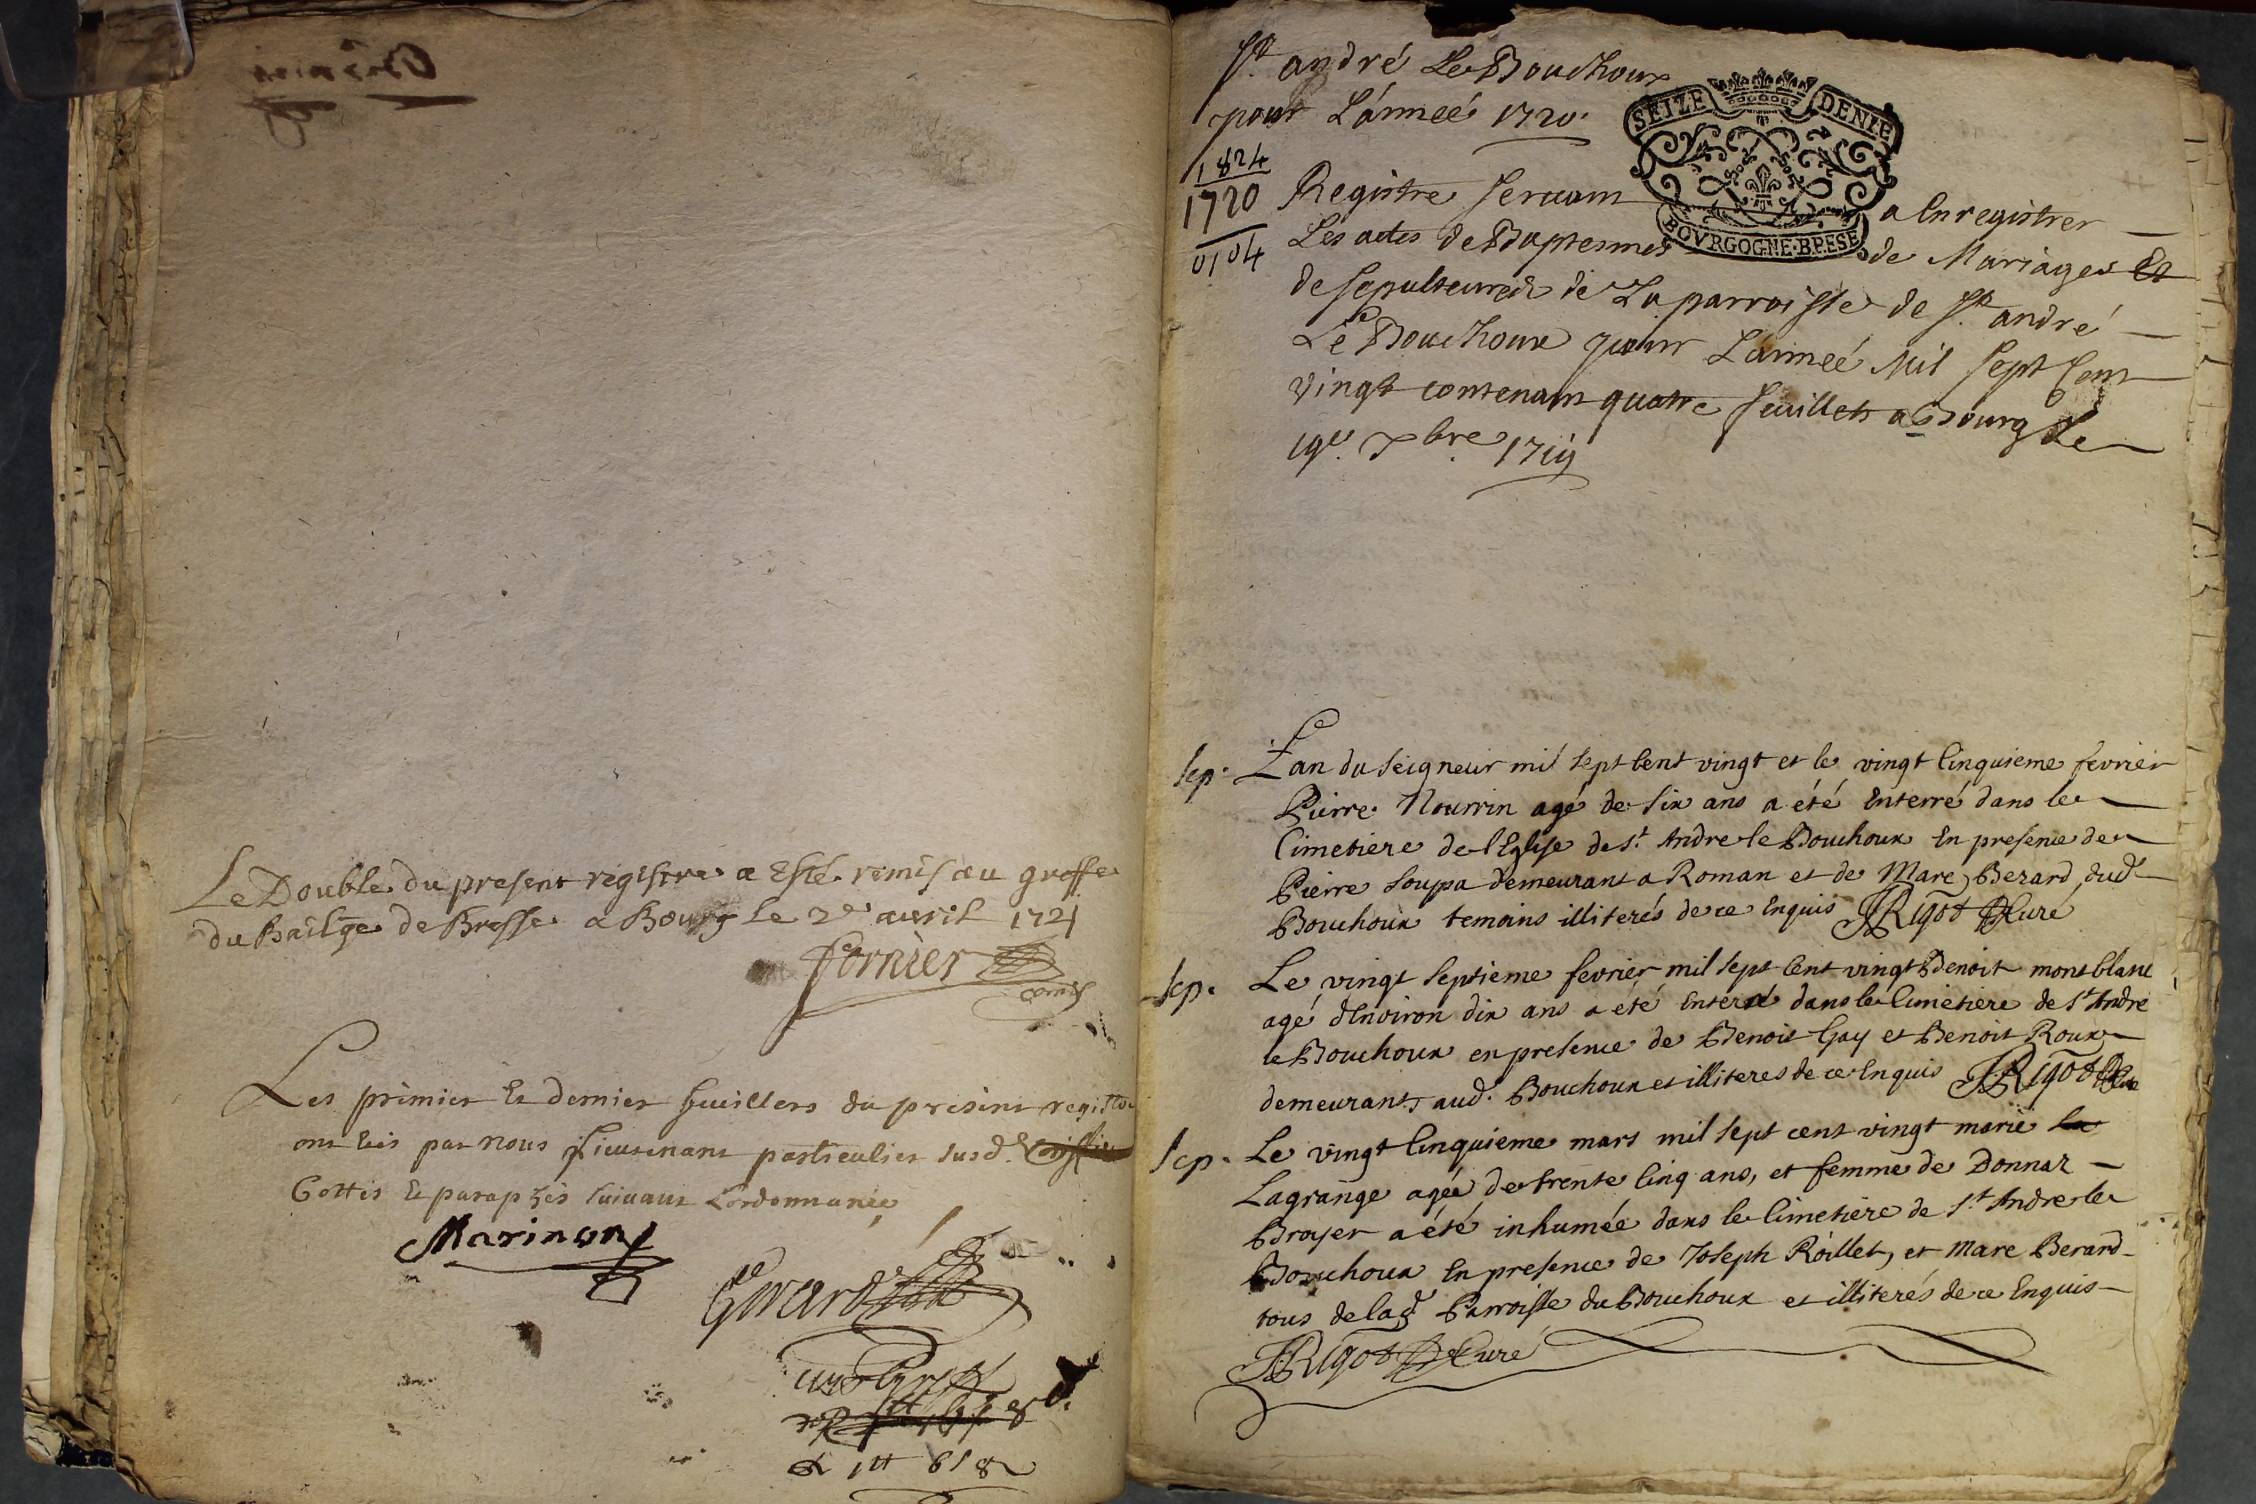 Le Double du present registre a Esté remis au greffe
du Bailge de Bresse a Bourg le 2e avril 1721
fornier
commis
Les premier Et dernier feuillets du present registre
ont Eté par nous Lieutenant particulier susd.
Cottés Et paraphés suivant Lordonnance
Marinon
Girard
St andré Le Bouchoux
pour L'année 1720.
SEIZE DENIE
BOVRGOGNE·BRESE
1824
1720
0104
Registre servant a Enregistrer
Les actes de Baptesmes de Mariages Et
de sepultures de La parroisse de St andré
Le Bouchoux pour L'année Mil sept Cent
vingt contenant quatre feuillets a Bourg Le
19e. xbre. 1719
Sep. L'an du Seigneur mil sept Cent vingt et le vingt Cinquieme fevrier
Pierre Nourrin agé de Six ans a été Enterré dans le
Cimetiere de l'Eglise de St Andre le Bouchoux En presence de
Pierre Soupa demeurant a Roman et de Marc Berard dud
Bouchoux temoins illiterés de ce Enquis JRigot Curé
Sep. Le vingt Septieme fevrier mil Sept Cent vingt Benoit montblanc
agé d'Environ dix ans a eté Enteré dans le Cimetiere de St Andre
le Bouchoux en presence de Benoit Gay et Benoit Roux
demeurants aud. Bouchoux et illiteres de ce Enquis JRigot Curé
Sep. Le vingt Cinquieme mars mil Sept cent vingt marie La
Lagrange agée de trente Cinq ans, et femme de Donnat
Broyer a été inhumée dans le Cimetiere de St Andre le
Bouchoux En presence de Joseph Roillet, et Marc Berard
tous de lad Parroisse du Bouchoux et illiterés de ce Enquis
JRigot Curé